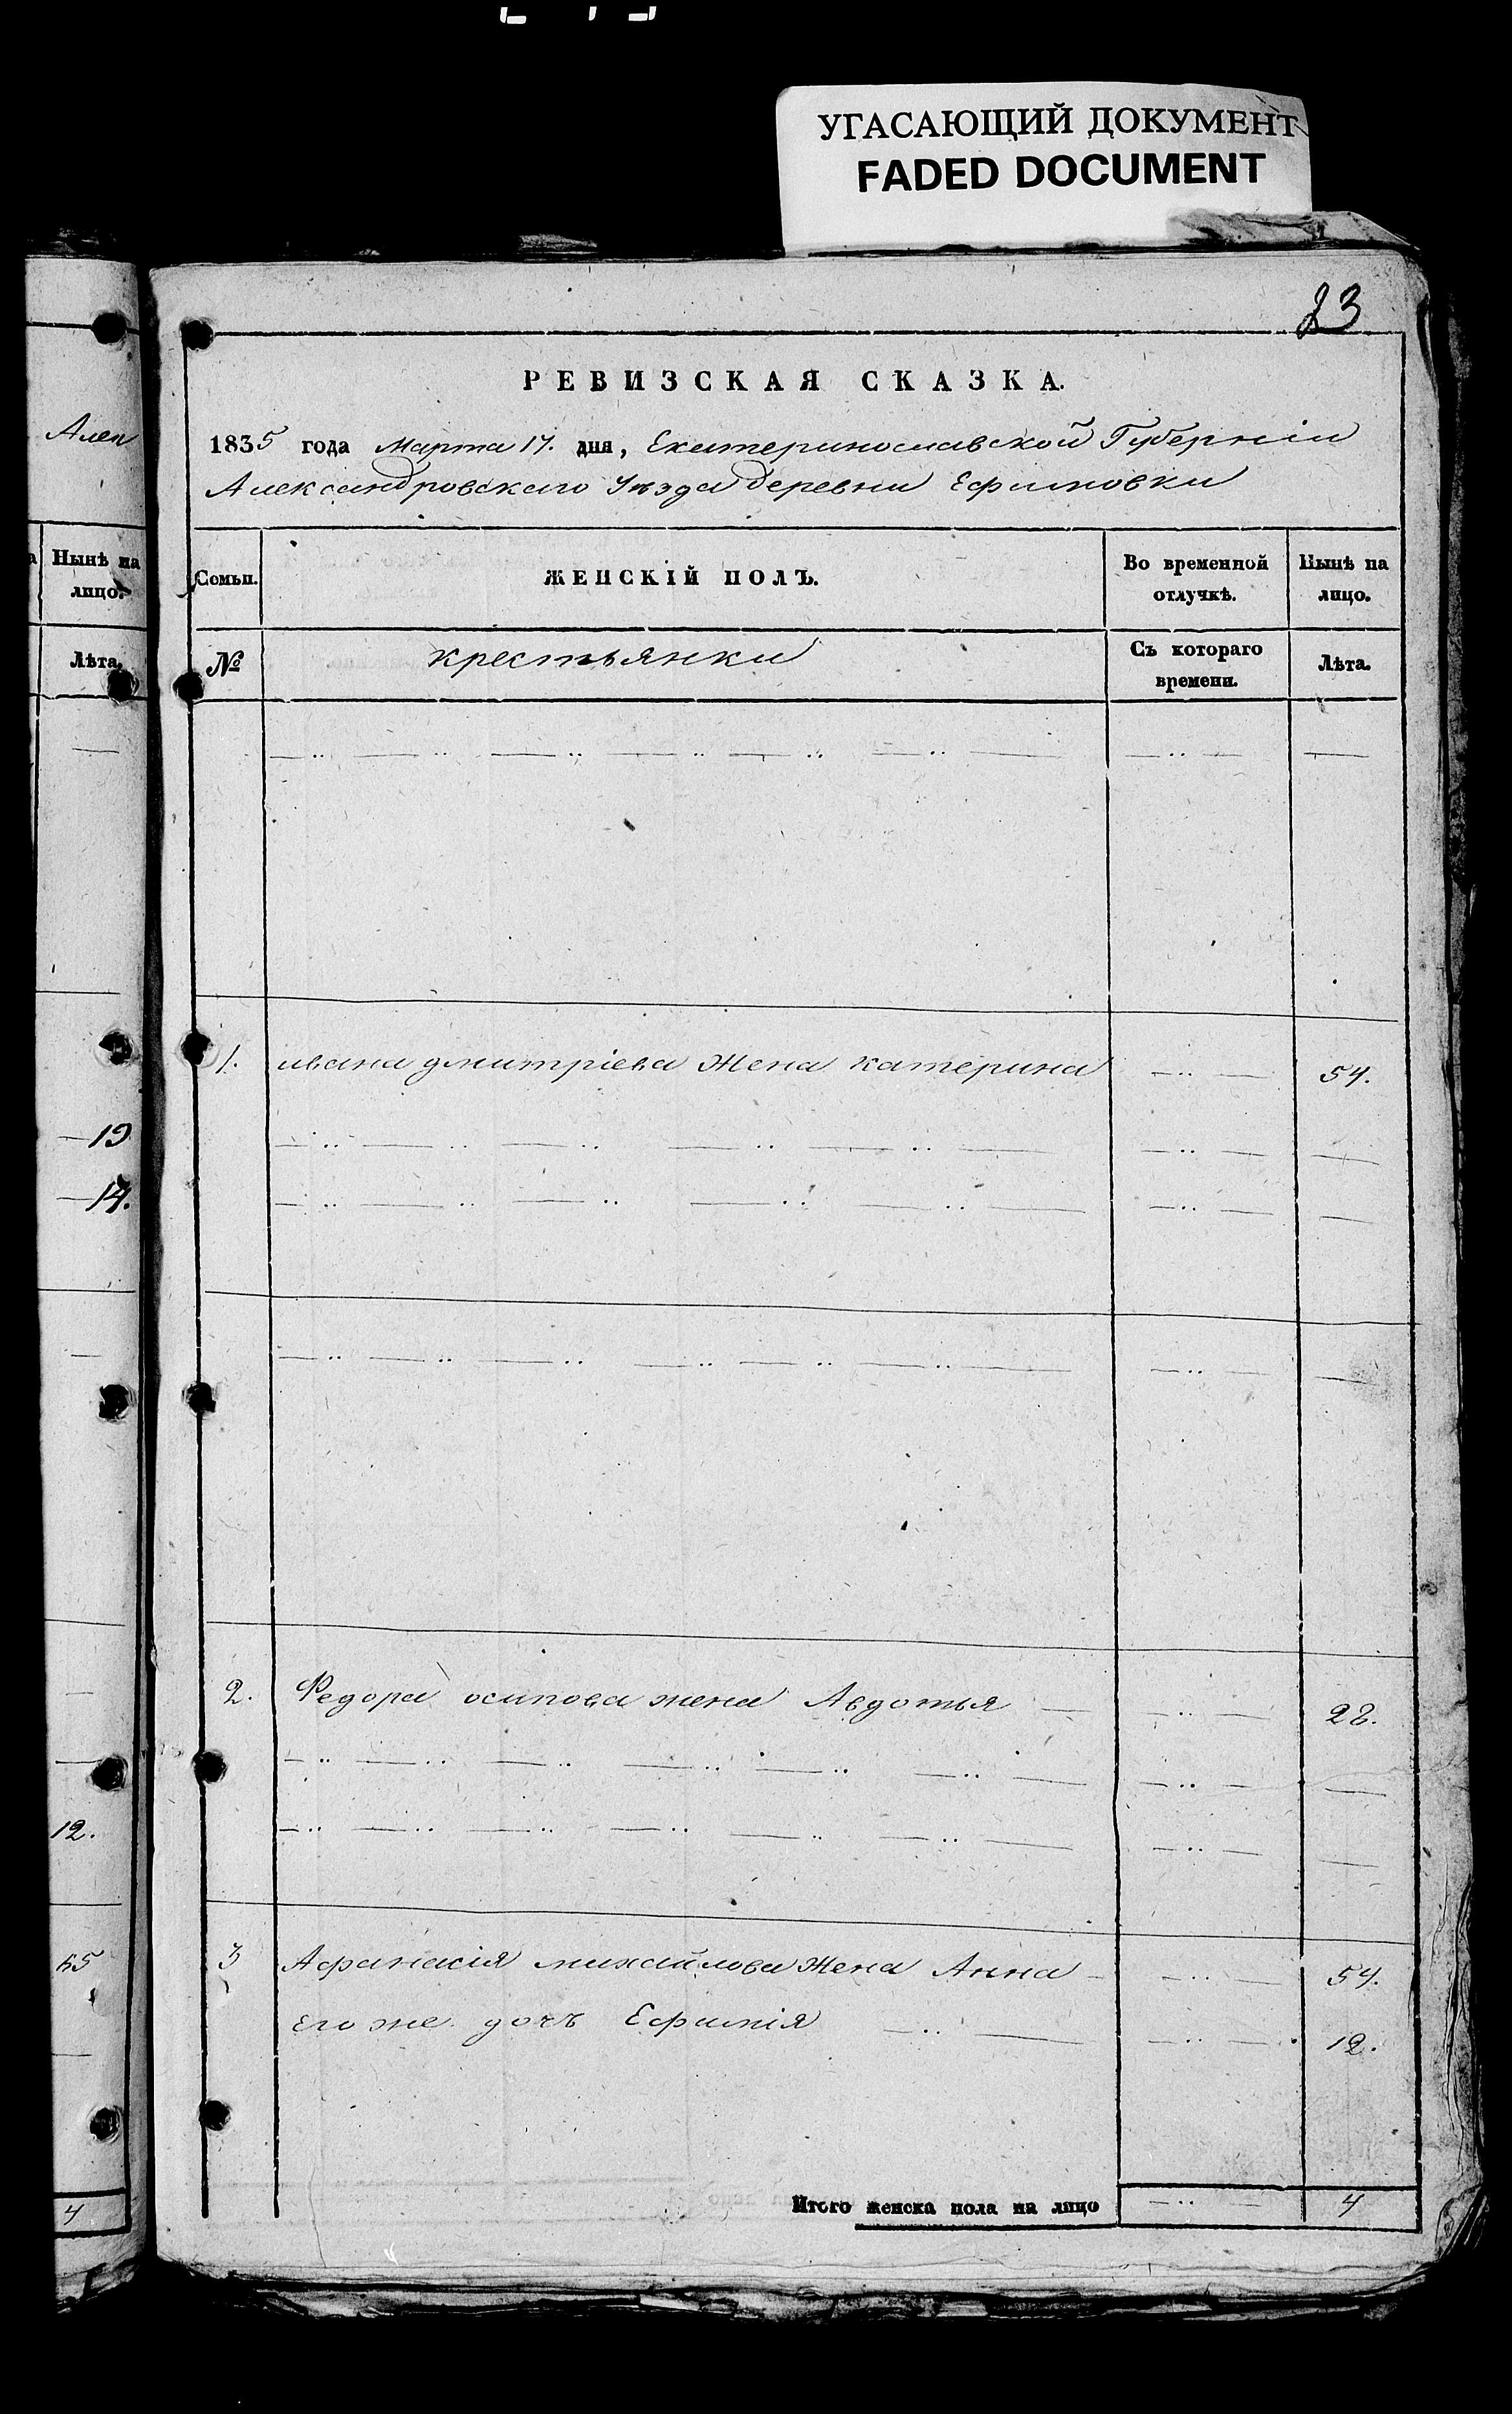 УГАСАЮЩИЙ ДОКУМЕНТ
FADED DOCUMENT
23
Алек
Нынѣ на
лицо.
Лѣта.
19
14.
12.
65
4
РЕВИЗСКАЯ СКАЗКА.
1835 года Марта 17. дня, Екатеринославской Губерніи
Александровскаго Уѣзда деревни Ефимовки
Семьи.
ЖЕНСКІЙ ПОЛЪ.
Во временной
отлучкѣ.
Нынѣ на
лицо.
№
крестьянки
Съ котораго
времени.
Лѣта.
1. ивана дмитріева жена катерина 54.
2. Федора осипова жена Авдотья 28.
3 Афанасія михайлова жена Анна 54.
его же дочь Ефимія 12.
Итого женска пола на лицо 4